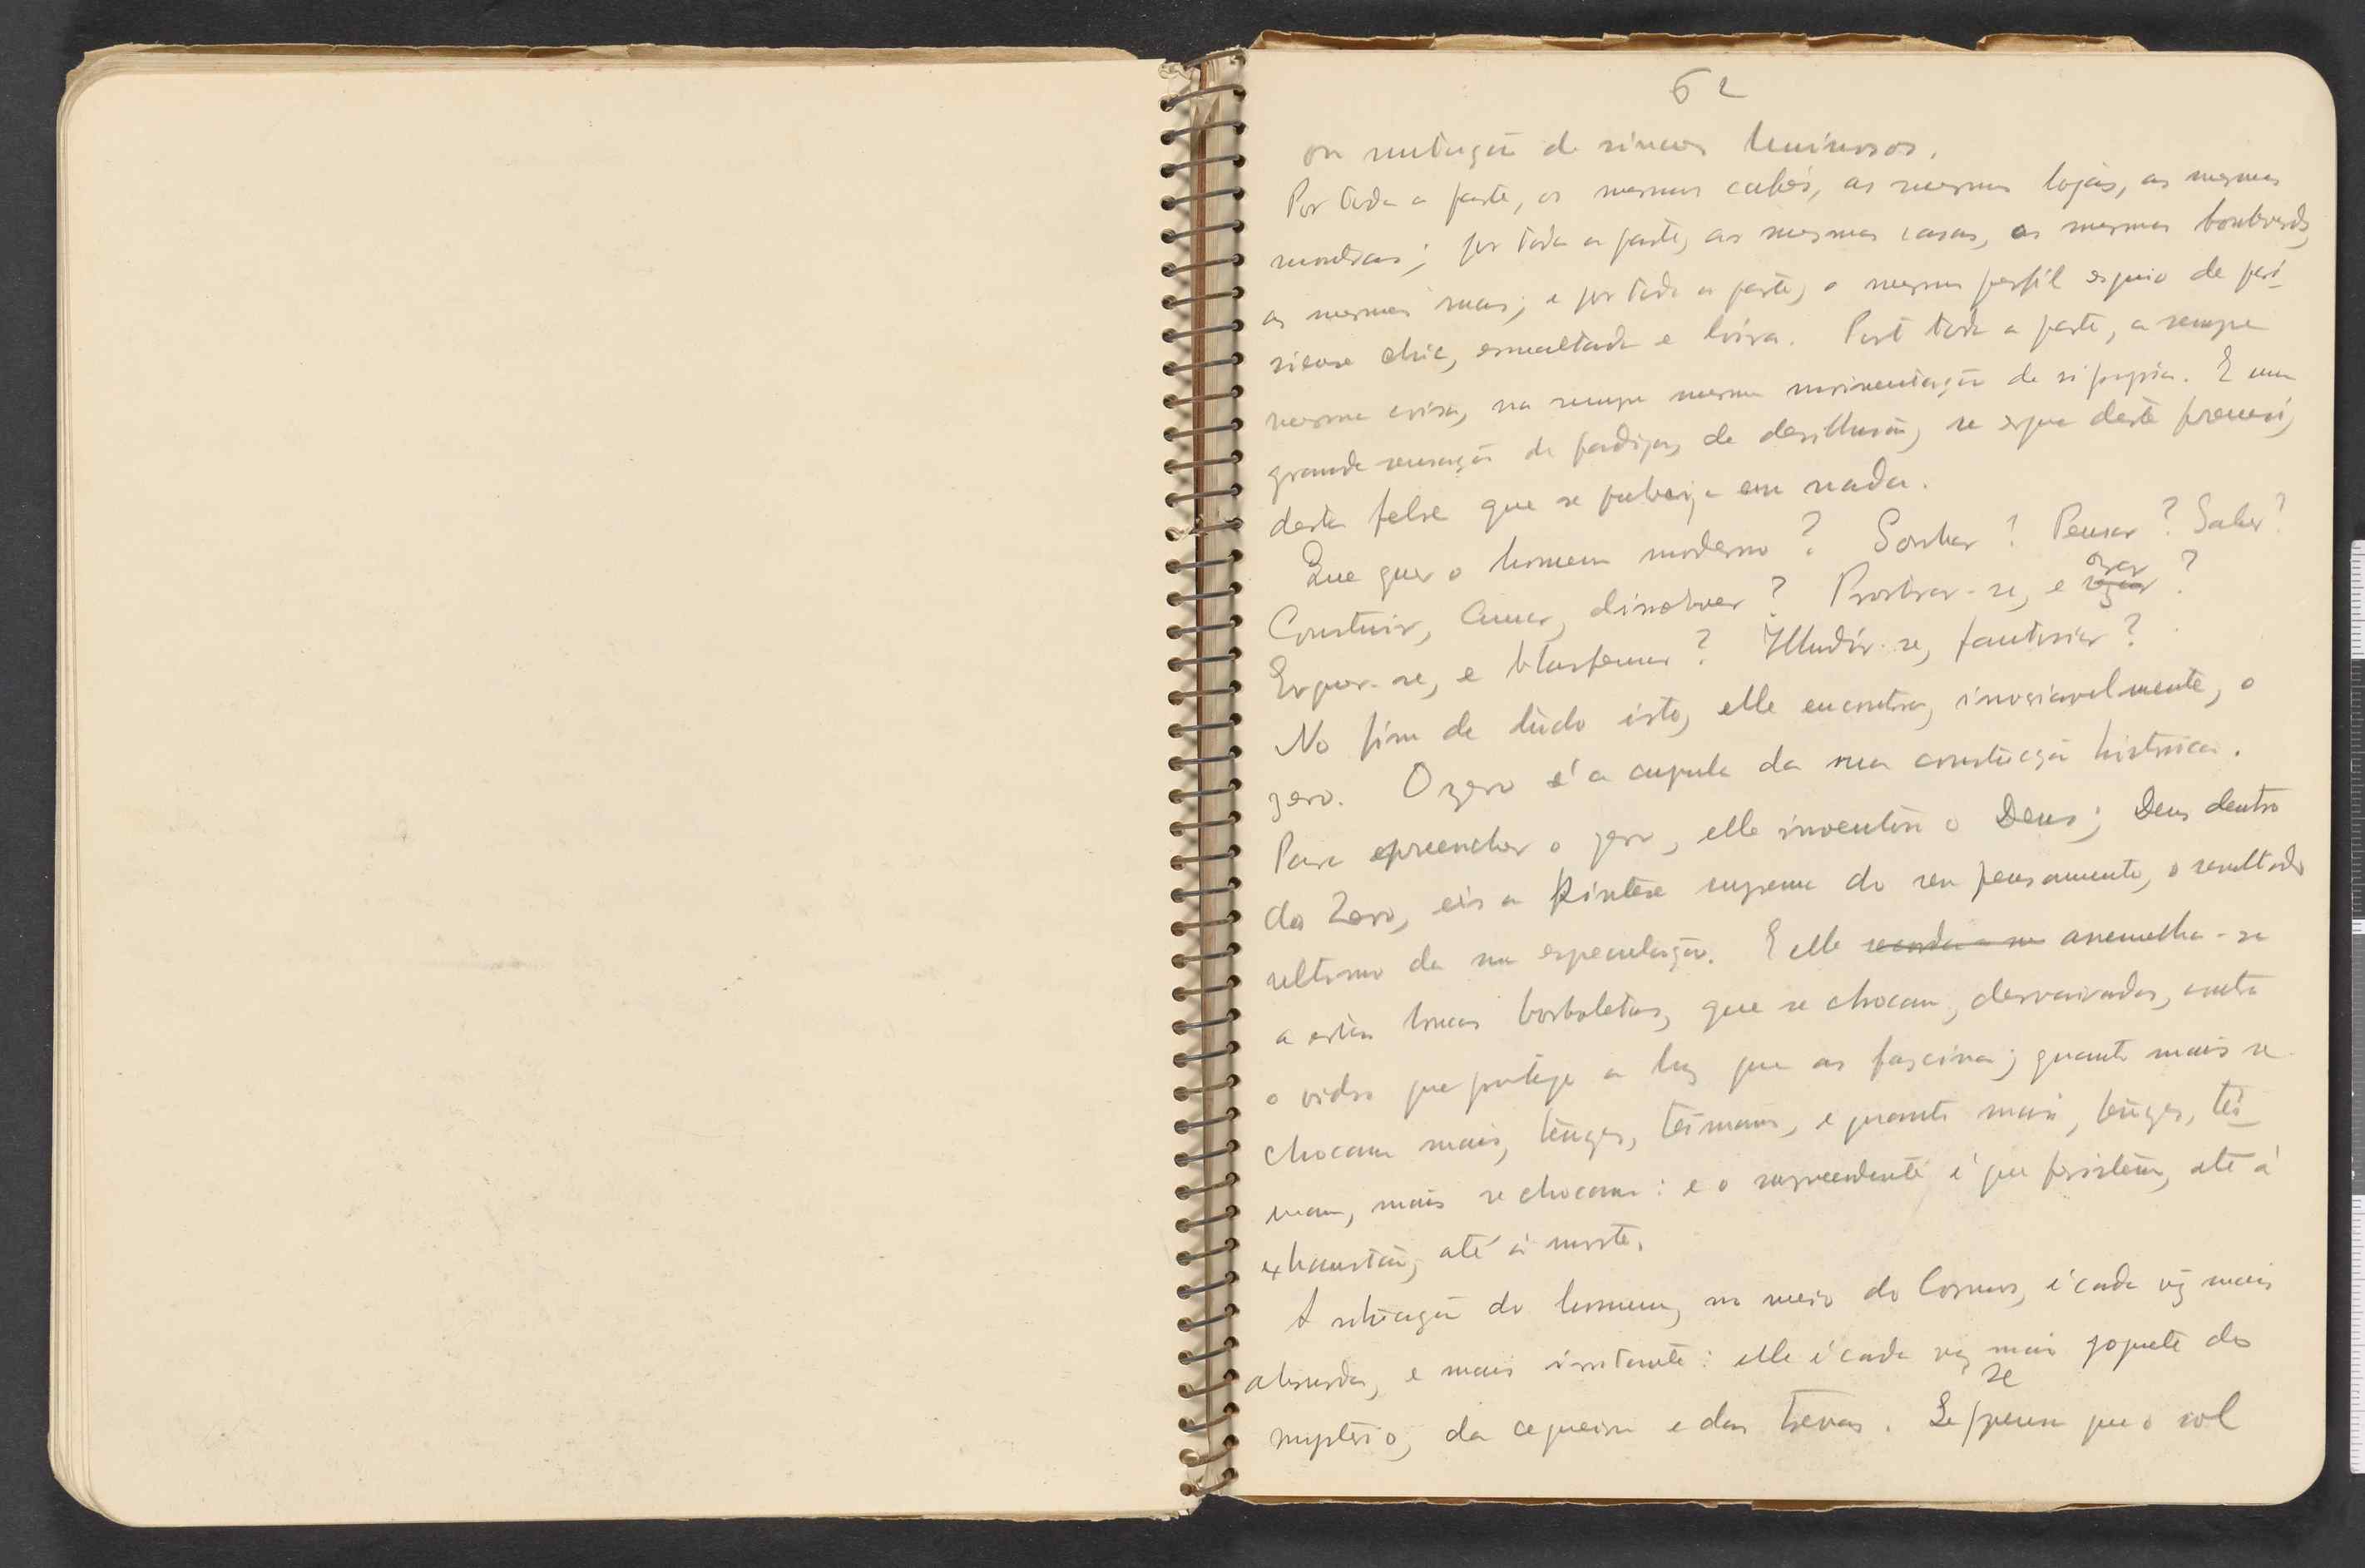 62
ou mutação de sinaes luminosos.
Por toda a parte, os mesmos cafés, as mesmas lojas, as mesmas
montras; por toda a parte, as mesmas casas, os mesmos boulevards,
as mesmas ruas; e por toda a parte, o mesmo perfil esguio de pari-
siense chic, esmaltada e loira. Por toda a parte, a sempre
mesma coisa, na sempre mesma movimentação de si propria. E uma
grande sensação de fadiga, de desillusão, se ergue deste frenesi,
desta febre que se fatiga em nada.
Que quer o homem moderno? Sonhar? Pensar? Saber?
Construir, Amar, dissolver? Prostrar-se, e orar?
Erguer-se, e blasfemar? Illudir-se, fantasiar?
No fim de tudo isto, elle encontra, invariavelmente, o
zero. O zero é a cupula da sua construcção historica.
Para preencher o zero, elle inventou o Deus; Deus dentro
do Zero, eis a sintese suprema do seu pensamento, o resultado
ultimo da sua especulação. E elle assemelha-se
a estas loucas borboletas, que se chocam, desvairadas, contra
o vidro que protege a luz que as fascina; quanto mais se
chocam mais, teimam, e quanto mais, tei-
mam, mais se chocam: e o surpreendente é que persistem, até á
exhaustão, até á morte.
A situação do homem, no meio do Cosmos, é cada vez mais
absurda, e mais irritante: elle é cada vez mais joguete do
mysterio, da cegueira e das trevas. Se se pensa que o sol